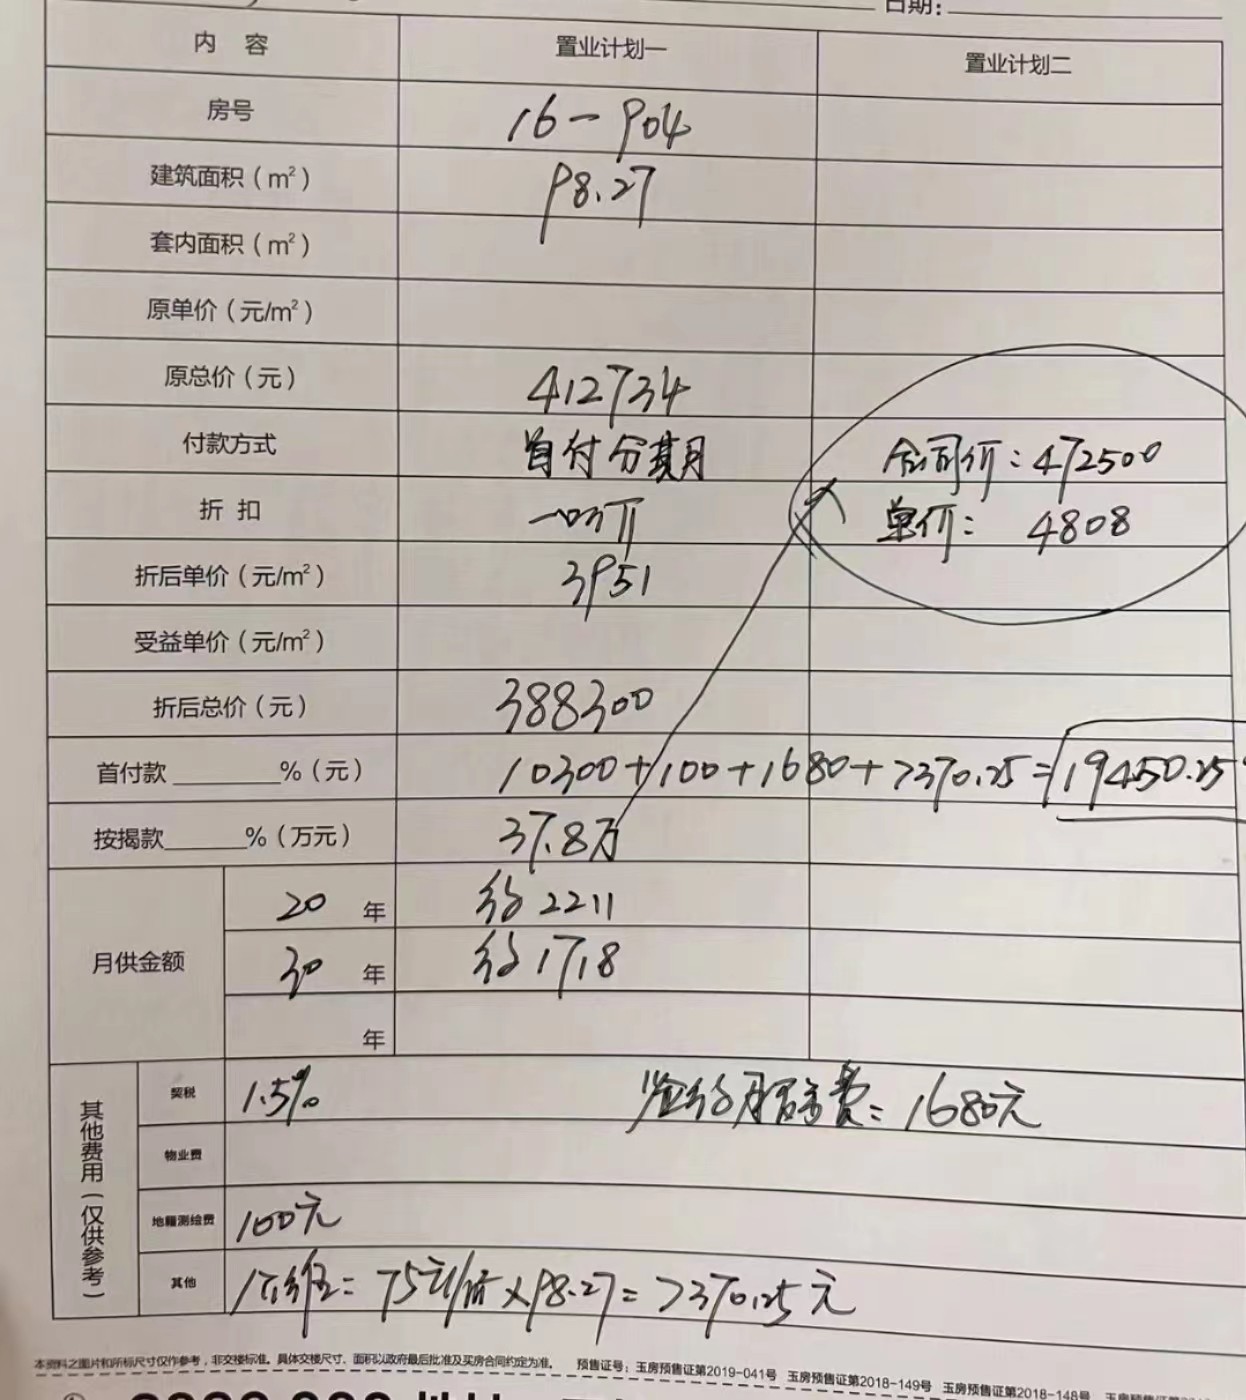 日期：
内 容 置业计划一 置业计划二
房号 16-904
建筑面积（m²） 98.27
套内面积（m²）
原单价（元/m²）
原总价（元） 412734
付款方式 首付分期 合同价：472500
折 扣 一口价 单价： 4808
折后单价（元/m²） 3951
受益单价（元/m²）
折后总价（元） 388300
首付款________%（元） 10300+100+1680+7370.25=19450.25
按揭款________%（万元） 37.8万
月供金额
20 年 约2211
30 年 约1718
年
其他费用（仅供参考）
契税 1.5% 费=1680元
物业费
地籍测绘费 100元
其他 公维=75元/㎡×98.27=7370.25元
本资料之图片和所标尺寸仅作参考，非交楼标准。具体交楼尺寸、面积以政府最后批准及买房合同约定为准。 预售证号：玉房预售证第2019-041号 玉房预售证第2018-149号 玉房预售证第2018-148号